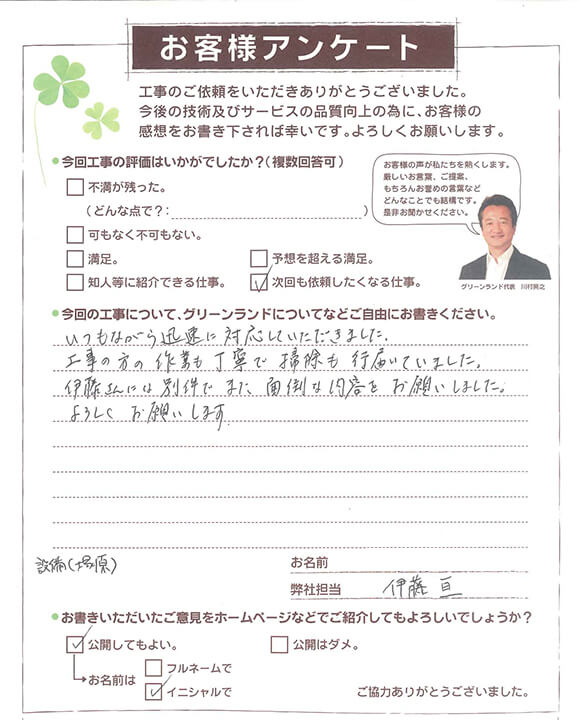 お客様アンケート
工事のご依頼をいただきありがとうございました。
今後の技術及びサービスの品質向上の為に、お客様の
感想をお書き下されば幸いです。よろしくお願いします。
今回工事の評価はいかがでしたか?(複数回答可)
不満が残った。
(どんな点で?: )
可もなく不可もない。
満足。
予想を超える満足。
知人等に紹介できる仕事。
次回も依頼したくなる仕事。
お客様の声が私たちを熱くします。
厳しいお言葉、ご提案、
もちろんお誉めの言葉など
どんなことでも結構です。
是非お聞かせください。
グリーンランド代表 川村興之
今回の工事について、グリーンランドについてなどご自由にお書きください。
いつもながら迅速に対応していただきました。
工事の方の作業も丁寧で掃除も行届いていました。
伊藤さんには別件でまた面倒な内容をお願いしました。
よろしくお願いします
設備(塚原)
お名前
弊社担当 伊藤 亘
お書きいただいたご意見をホームページなどでご紹介してもよろしいでしょうか?
公開してもよい。
公開はダメ。
お名前は
フルネームで
イニシャルで
ご協力ありがとうございました。